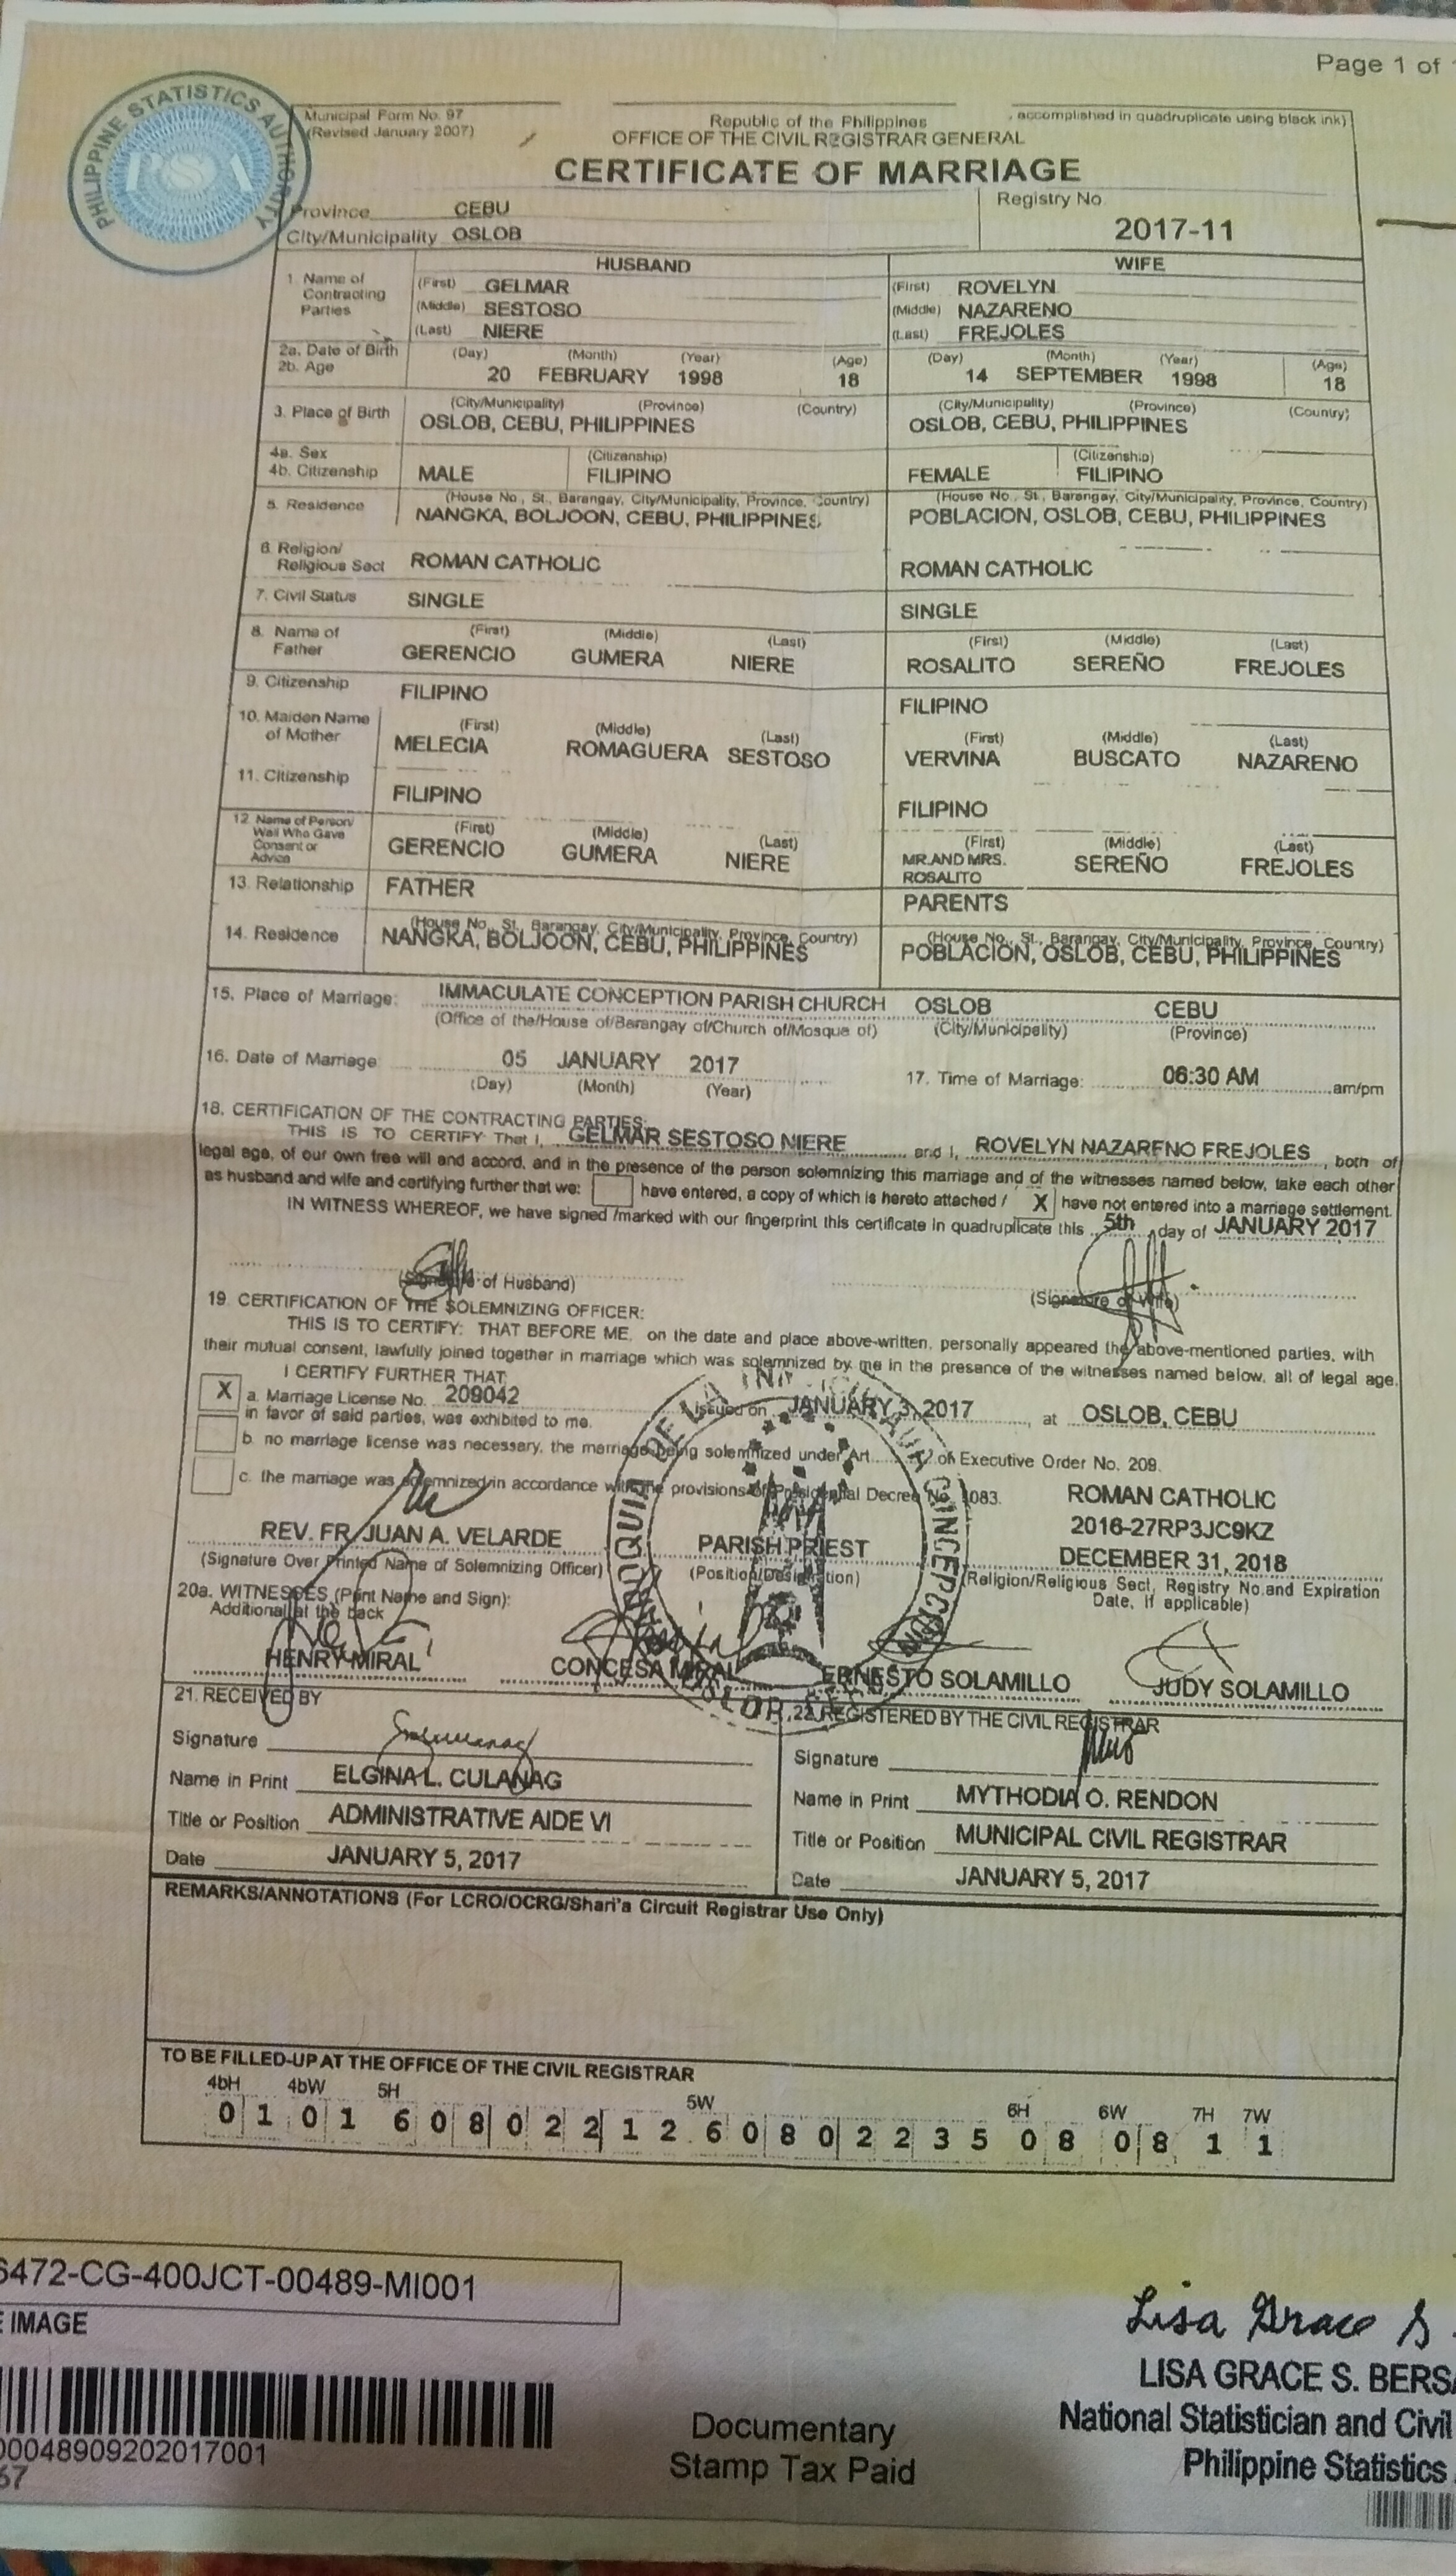 Page 1 of
PHILIPPINE STATISTICS AUTHORITY
PSA
Municipal Form No. 97
(Revised January 2007)
Republic of the Philippines
OFFICE OF THE CIVIL REGISTRAR GENERAL
accomplished in quadruplicate using black ink)
CERTIFICATE OF MARRIAGE
Province CEBU
City/Municipality OSLOB
Registry No
2017-11
HUSBAND WIFE
1. Name of Contracting Parties
(First) GELMAR (First) ROVELYN
(Middle) SESTOSO (Middle) NAZARENO
(Last) NIERE (Last) FREJOLES
2a. Date of Birth (Day) (Month) (Year) (Age) (Day) (Month) (Year) (Age)
2b. Age 20 FEBRUARY 1998 18 14 SEPTEMBER 1998 18
3. Place of Birth (City/Municipality) (Province) (Country) (City/Municipality) (Province) (Country)
OSLOB, CEBU, PHILIPPINES OSLOB, CEBU, PHILIPPINES
4a. Sex (Citizenship) (Citizenship)
4b. Citizenship MALE FILIPINO FEMALE FILIPINO
5. Residence (House No., St., Barangay, City/Municipality, Province, Country) (House No., St., Barangay, City/Municipality, Province, Country)
NANGKA, BOLJOON, CEBU, PHILIPPINES POBLACION, OSLOB, CEBU, PHILIPPINES
6. Religion/
Religious Sect ROMAN CATHOLIC ROMAN CATHOLIC
7. Civil Status SINGLE SINGLE
8. Name of Father (First) (Middle) (Last) (First) (Middle) (Last)
GERENCIO GUMERA NIERE ROSALITO SEREÑO FREJOLES
9. Citizenship FILIPINO FILIPINO
10. Maiden Name of Mother (First) (Middle) (Last) (First) (Middle) (Last)
MELECIA ROMAGUERA SESTOSO VERVINA BUSCATO NAZARENO
11. Citizenship FILIPINO FILIPINO
12 Name of Person/ Wali Who Gave Consent or Advice (First) (Middle) (Last) (First) (Middle) (Last)
GERENCIO GUMERA NIERE MR.AND MRS. ROSALITO SEREÑO FREJOLES
13. Relationship FATHER PARENTS
14. Residence (House No., St., Barangay, City/Municipality, Province, Country) (House No., St., Barangay, City/Municipality, Province, Country)
NANGKA, BOLJOON, CEBU, PHILIPPINES POBLACION, OSLOB, CEBU, PHILIPPINES
15. Place of Marriage: IMMACULATE CONCEPTION PARISH CHURCH OSLOB CEBU
(Office of the/House of/Barangay of/Church of/Mosque of) (City/Municipality) (Province)
16. Date of Marriage: 05 JANUARY 2017 17. Time of Marriage: 06:30 AM am/pm
(Day) (Month) (Year)
18. CERTIFICATION OF THE CONTRACTING PARTIES:
THIS IS TO CERTIFY: That I, GELMAR SESTOSO NIERE and I, ROVELYN NAZARENO FREJOLES, both of
legal age, of our own free will and accord, and in the presence of the person solemnizing this marriage and of the witnesses named below, take each other
as husband and wife and certifying further that we: have entered, a copy of which is hereto attached / X have not entered into a marriage settlement.
IN WITNESS WHEREOF, we have signed /marked with our fingerprint this certificate in quadruplicate this 5th day of JANUARY 2017
(Signature of Husband) (Signature of Wife)
19. CERTIFICATION OF THE SOLEMNIZING OFFICER:
THIS IS TO CERTIFY: THAT BEFORE ME, on the date and place above-written, personally appeared the above-mentioned parties, with
their mutual consent, lawfully joined together in marriage which was solemnized by me in the presence of the witnesses named below, all of legal age.
I CERTIFY FURTHER THAT:
X a. Marriage License No. 209042 issued on JANUARY 3, 2017, at OSLOB, CEBU
in favor of said parties, was exhibited to me.
b. no marriage license was necessary, the marriage being solemnized under Art. of Executive Order No. 209.
c. the marriage was solemnized in accordance with the provisions of Presidential Decree No. 1083.
ROMAN CATHOLIC
2016-27RP3JC9KZ
REV. FR. JUAN A. VELARDE PARISH PRIEST DECEMBER 31, 2018
(Signature Over Printed Name of Solemnizing Officer) (Position/Designation) (Religion/Religious Sect, Registry No.and Expiration
Date, if applicable)
20a. WITNESSES (Print Name and Sign):
Additional at the back
HENRY MIRAL CONCESA MIRAL ERNESTO SOLAMILLO JUDY SOLAMILLO
21. RECEIVED BY 22. REGISTERED BY THE CIVIL REGISTRAR
Signature Signature
Name in Print ELGINA L. CULANAG Name in Print MYTHODIA O. RENDON
Title or Position ADMINISTRATIVE AIDE VI Title or Position MUNICIPAL CIVIL REGISTRAR
Date JANUARY 5, 2017 Date JANUARY 5, 2017
REMARKS/ANNOTATIONS (For LCRO/OCRG/Shari'a Circuit Registrar Use Only)
TO BE FILLED-UP AT THE OFFICE OF THE CIVIL REGISTRAR
4bH 4bW 5H 5W 6H 6W 7H 7W
0 1 0 1 6 0 8 0 2 2 1 2 6 0 8 0 2 2 3 5 0 8 0 8 1 1
6472-CG-400JCT-00489-MI001
IMAGE
00048909202017001
67
Documentary
Stamp Tax Paid
Lisa Grace S
LISA GRACE S. BERSA
National Statistician and Civil
Philippine Statistics